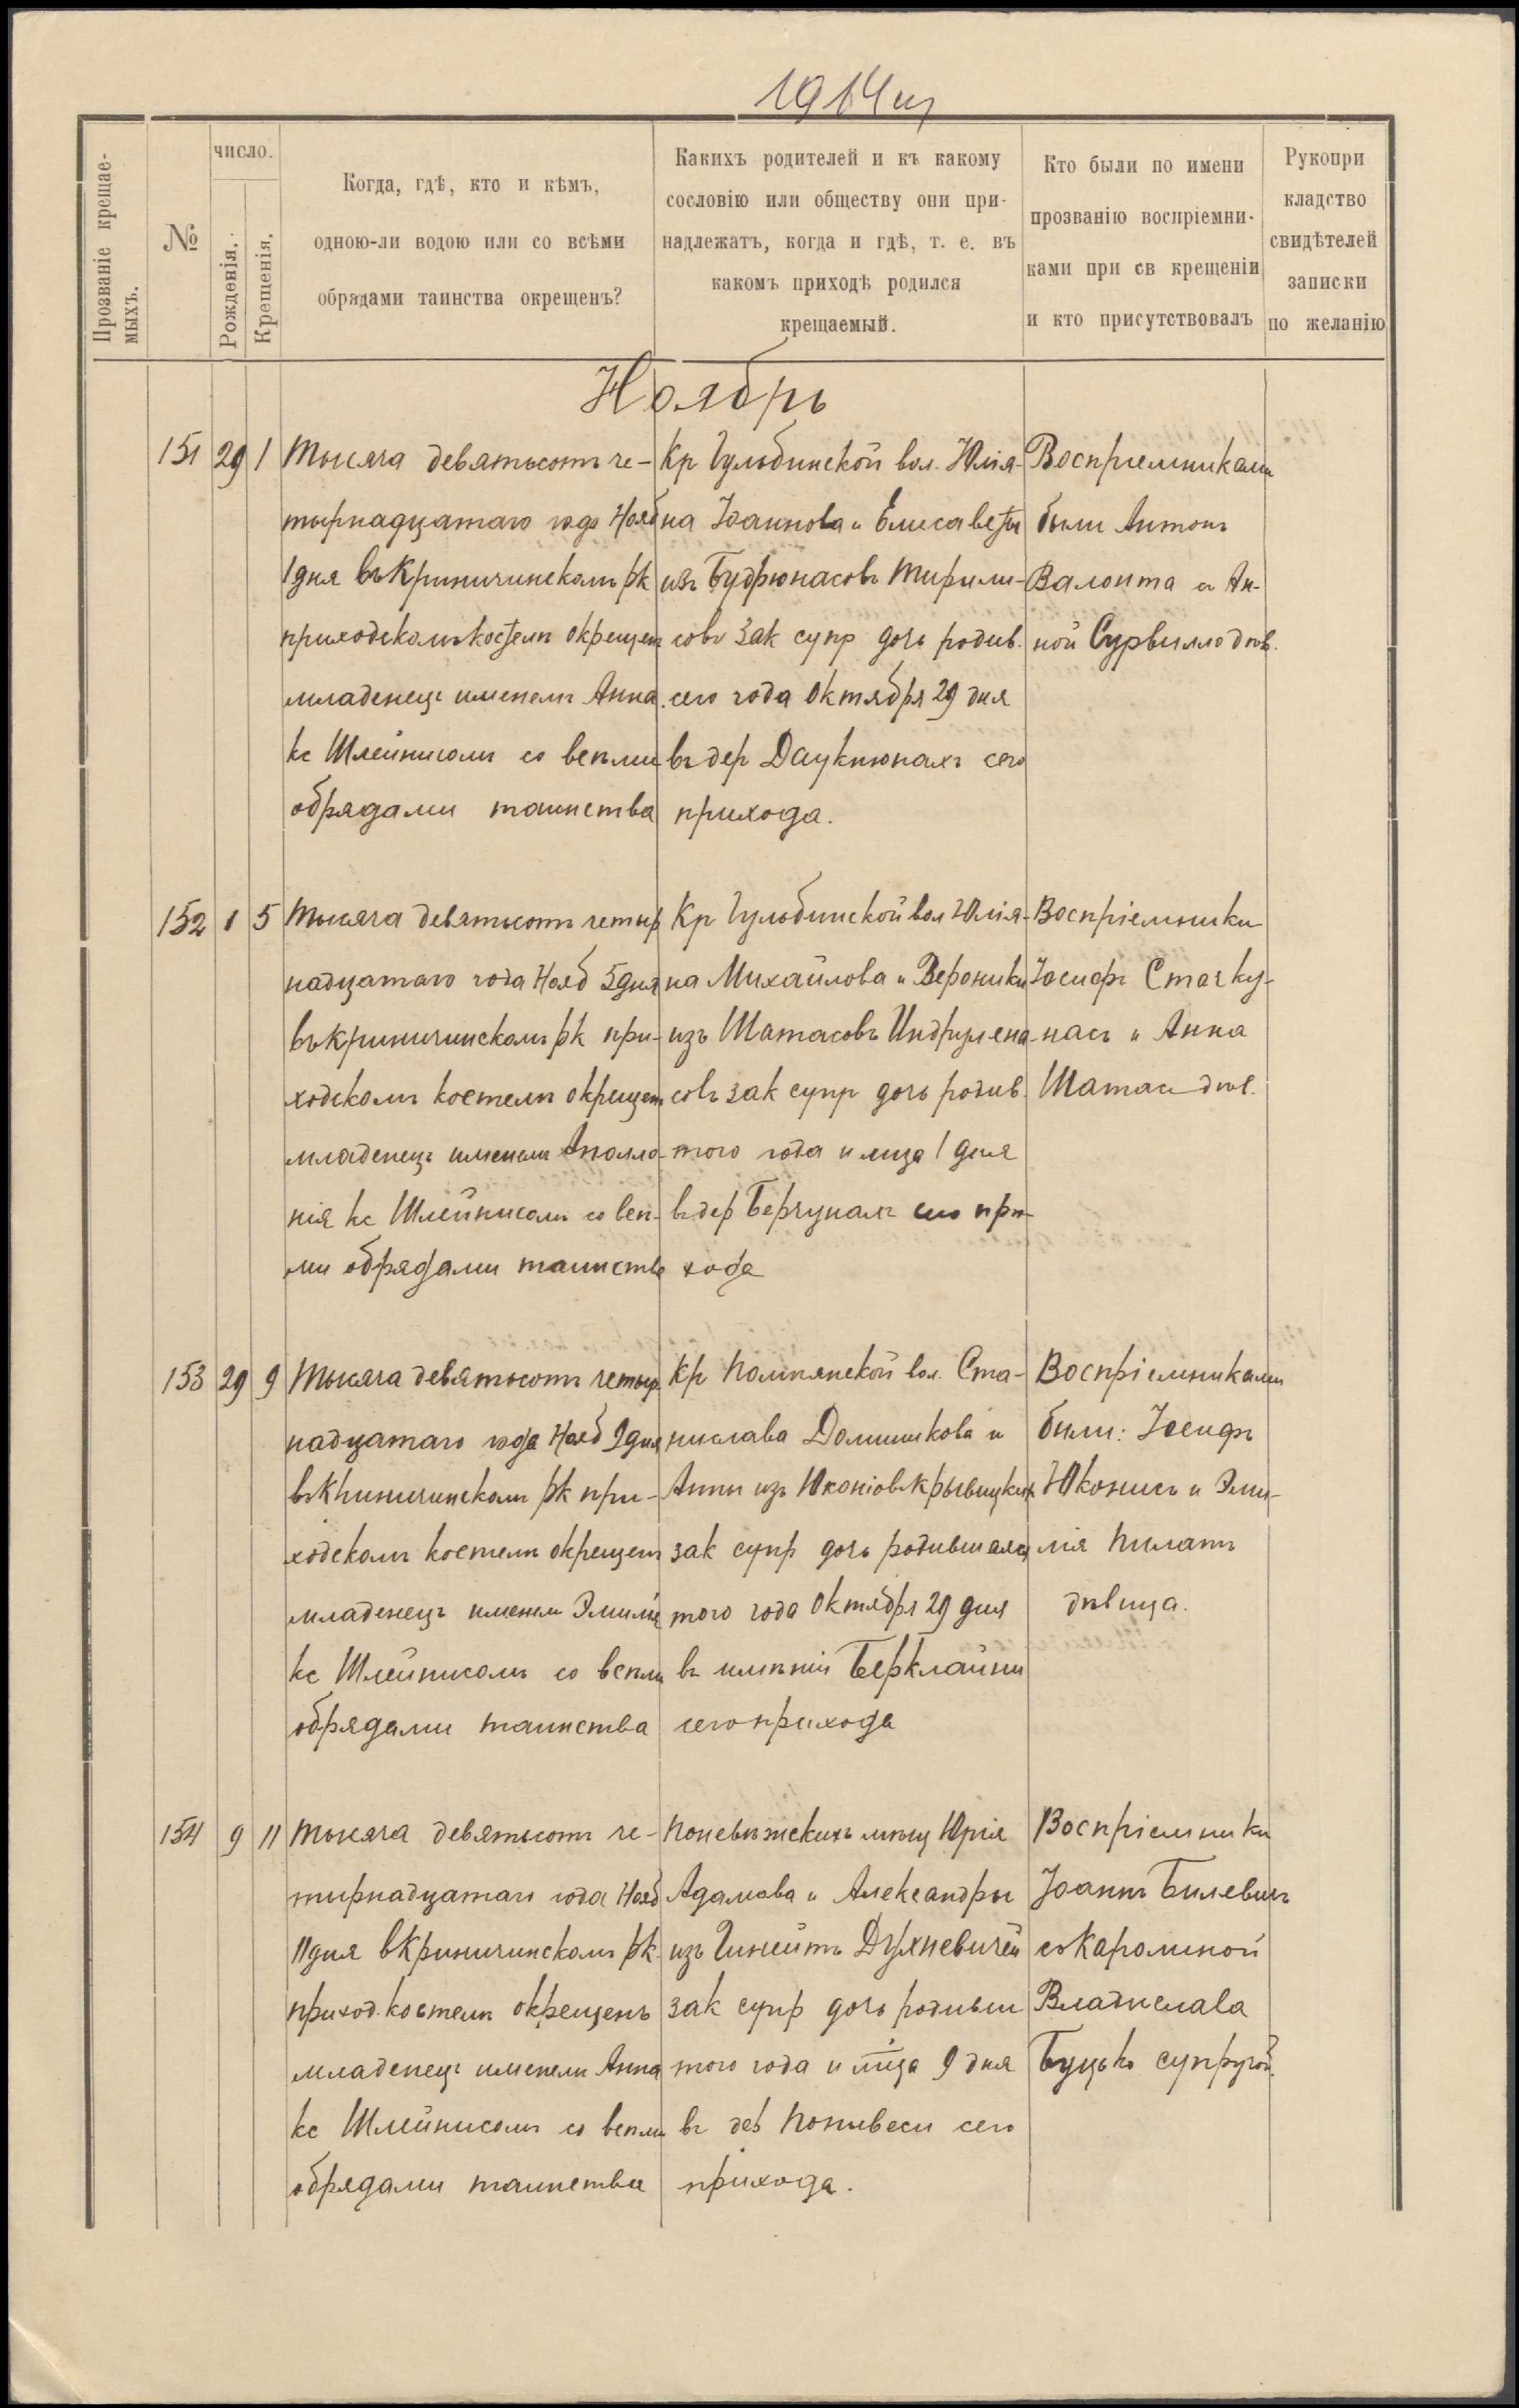 1914
Прозваніе крещае-
мыхъ.
№
число.
Рожденія.
Крещенія.
Когда, гдѣ, кто и кѣмъ,
одною-ли водою или со всѣми
обрядами таинства окрещенъ?
Какихъ родителей и къ какому
сословію или обществу они при-
надлежатъ, когда и гдѣ, т. е. въ
какомъ приходѣ родился
крещаемый.
Кто были по имени
прозванію воспріемни-
ками при св крещеніи
и кто присутствовалъ
Рукопри
кладство
свидѣтелей
записки
по желанію
Ноябрь
151 29 1
Тысяча девятьсотъ че-
тырнадцатаго года Нояб
1 дня въ Криничинскомъ рк
приходскомъ костелѣ окрещен
младенецъ именемъ Анна.
кс Шлейнисомъ со всѣми
обрядами таинства
Кр Гульбинской вол. Юлія-
на Іоаннова и Елисаветы
изъ Будрюнасовъ
совъ зак супр дочь родив.
сего года Октября 29 дня
въ дер Даукнюнахъ сего
прихода.
Воспріемниками
были Антонъ
Валонта и Ан-
ной Сурвилло дѣв.
152 1 5
Тысяча девятьсотъ четыр
надцатаго года Нояб 5 дня
въ Криничинскомъ рк при-
ходскомъ костелѣ окрещен
младенецъ именемъ Аполло-
нія кс Шлейнисомъ со всѣ-
ми обрядами таинства
Кр Гульбинской вол Юлія-
на Михайлова и Вероники
изъ Шатасовъ Индрулена-
совъ зак супр дочь родив.
того года и мца 1 дня
въ дер Берчунахъ сего при-
хода
Воспріемники
Іосифъ Стачку-
насъ и Анна
Шатас дѣв.
153 29 9
Тысяча девятьсотъ четыр
надцатаго года Нояб 9 дня
въ Криничинскомъ рк при-
ходскомъ костелѣ окрещенъ
младенецъ именем Эмилія
кс Шлейнисомъ со всѣми
обрядами таинства
Кр Помпянской вол. Ста-
нислава Доминикова и
Анны изъ Юконіовъ Крывицкихъ
зак супр дочь родившаяся
того года Октября 29 дня
въ имѣніи Берклайни
сего прихода
Воспріемниками
были: Іосифъ
Юконисъ и Эми-
лія Пилатъ
дѣвица.
154 9 11
Тысяча девятьсотъ че-
тырнадцатаго года Нояб
11 дня в Криничинскомъ рк.
приход. костелѣ окрещенъ
младенецъ именемъ Анна
кс Шлейнисомъ со всѣми
обрядами таинства
Поневѣжскихъ мѣщ Юрія
Адамова и Александры
изъ Гинейтъ Духневичей
зак супр дочь родивш
того года и мца 9 дня
въ дер Понивеси сего
прихода.
Воспріемники
Іоаннъ Билевичъ
съ Каролиной
Владислава
Буцько супругой.